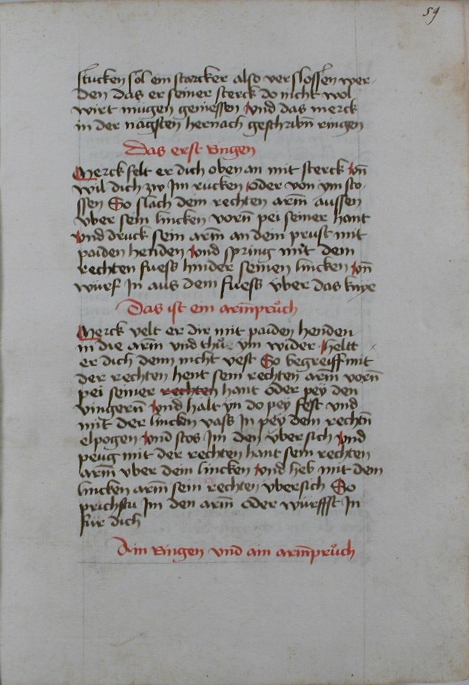 59
stucken sol ein starcker also verslossen wer-
den das er seiner sterck do nicht wol
wirt mugen geniessen Vnd das merck
in der nagsten hernach geschribñ ringen
Das erst ringen
Merck felt er dich oben an mit sterck vñ
wil dich zw Im rucken oder von ym sto-
ssen So slach dein rechten arm aussen
vber sein lincken vorñ pei seiner hant
Vnd druck sein arm an dein prust mit
paiden henden Vnd spring mit dem
rechten fuess hinder seinen lincken vñ
würf In aus dem fuess vber das knye
Das ist ein armprüch
Merck velt er dir mit paiden henden
in die arm vnd thüe ym wider heltt
er dich denn nicht vest So begreiff mit
der rechten hent sein rechten arm vorñ
pei seiner rechten hant oder pey den
vingerñ Vnd halt yn do pey fest vnd
mit der lincken vass in pey dem rechtñ
elpogen Vnd stos Im den vbersich Vnd
peug mit der rechten hant sein rechten
arm vber dein lincken Vnd heb mit dem
lincken arm sein rechten vbersich So
prichstu Im den arm oder würffst In
für dich
Ain Ringen vnd ain armprüch